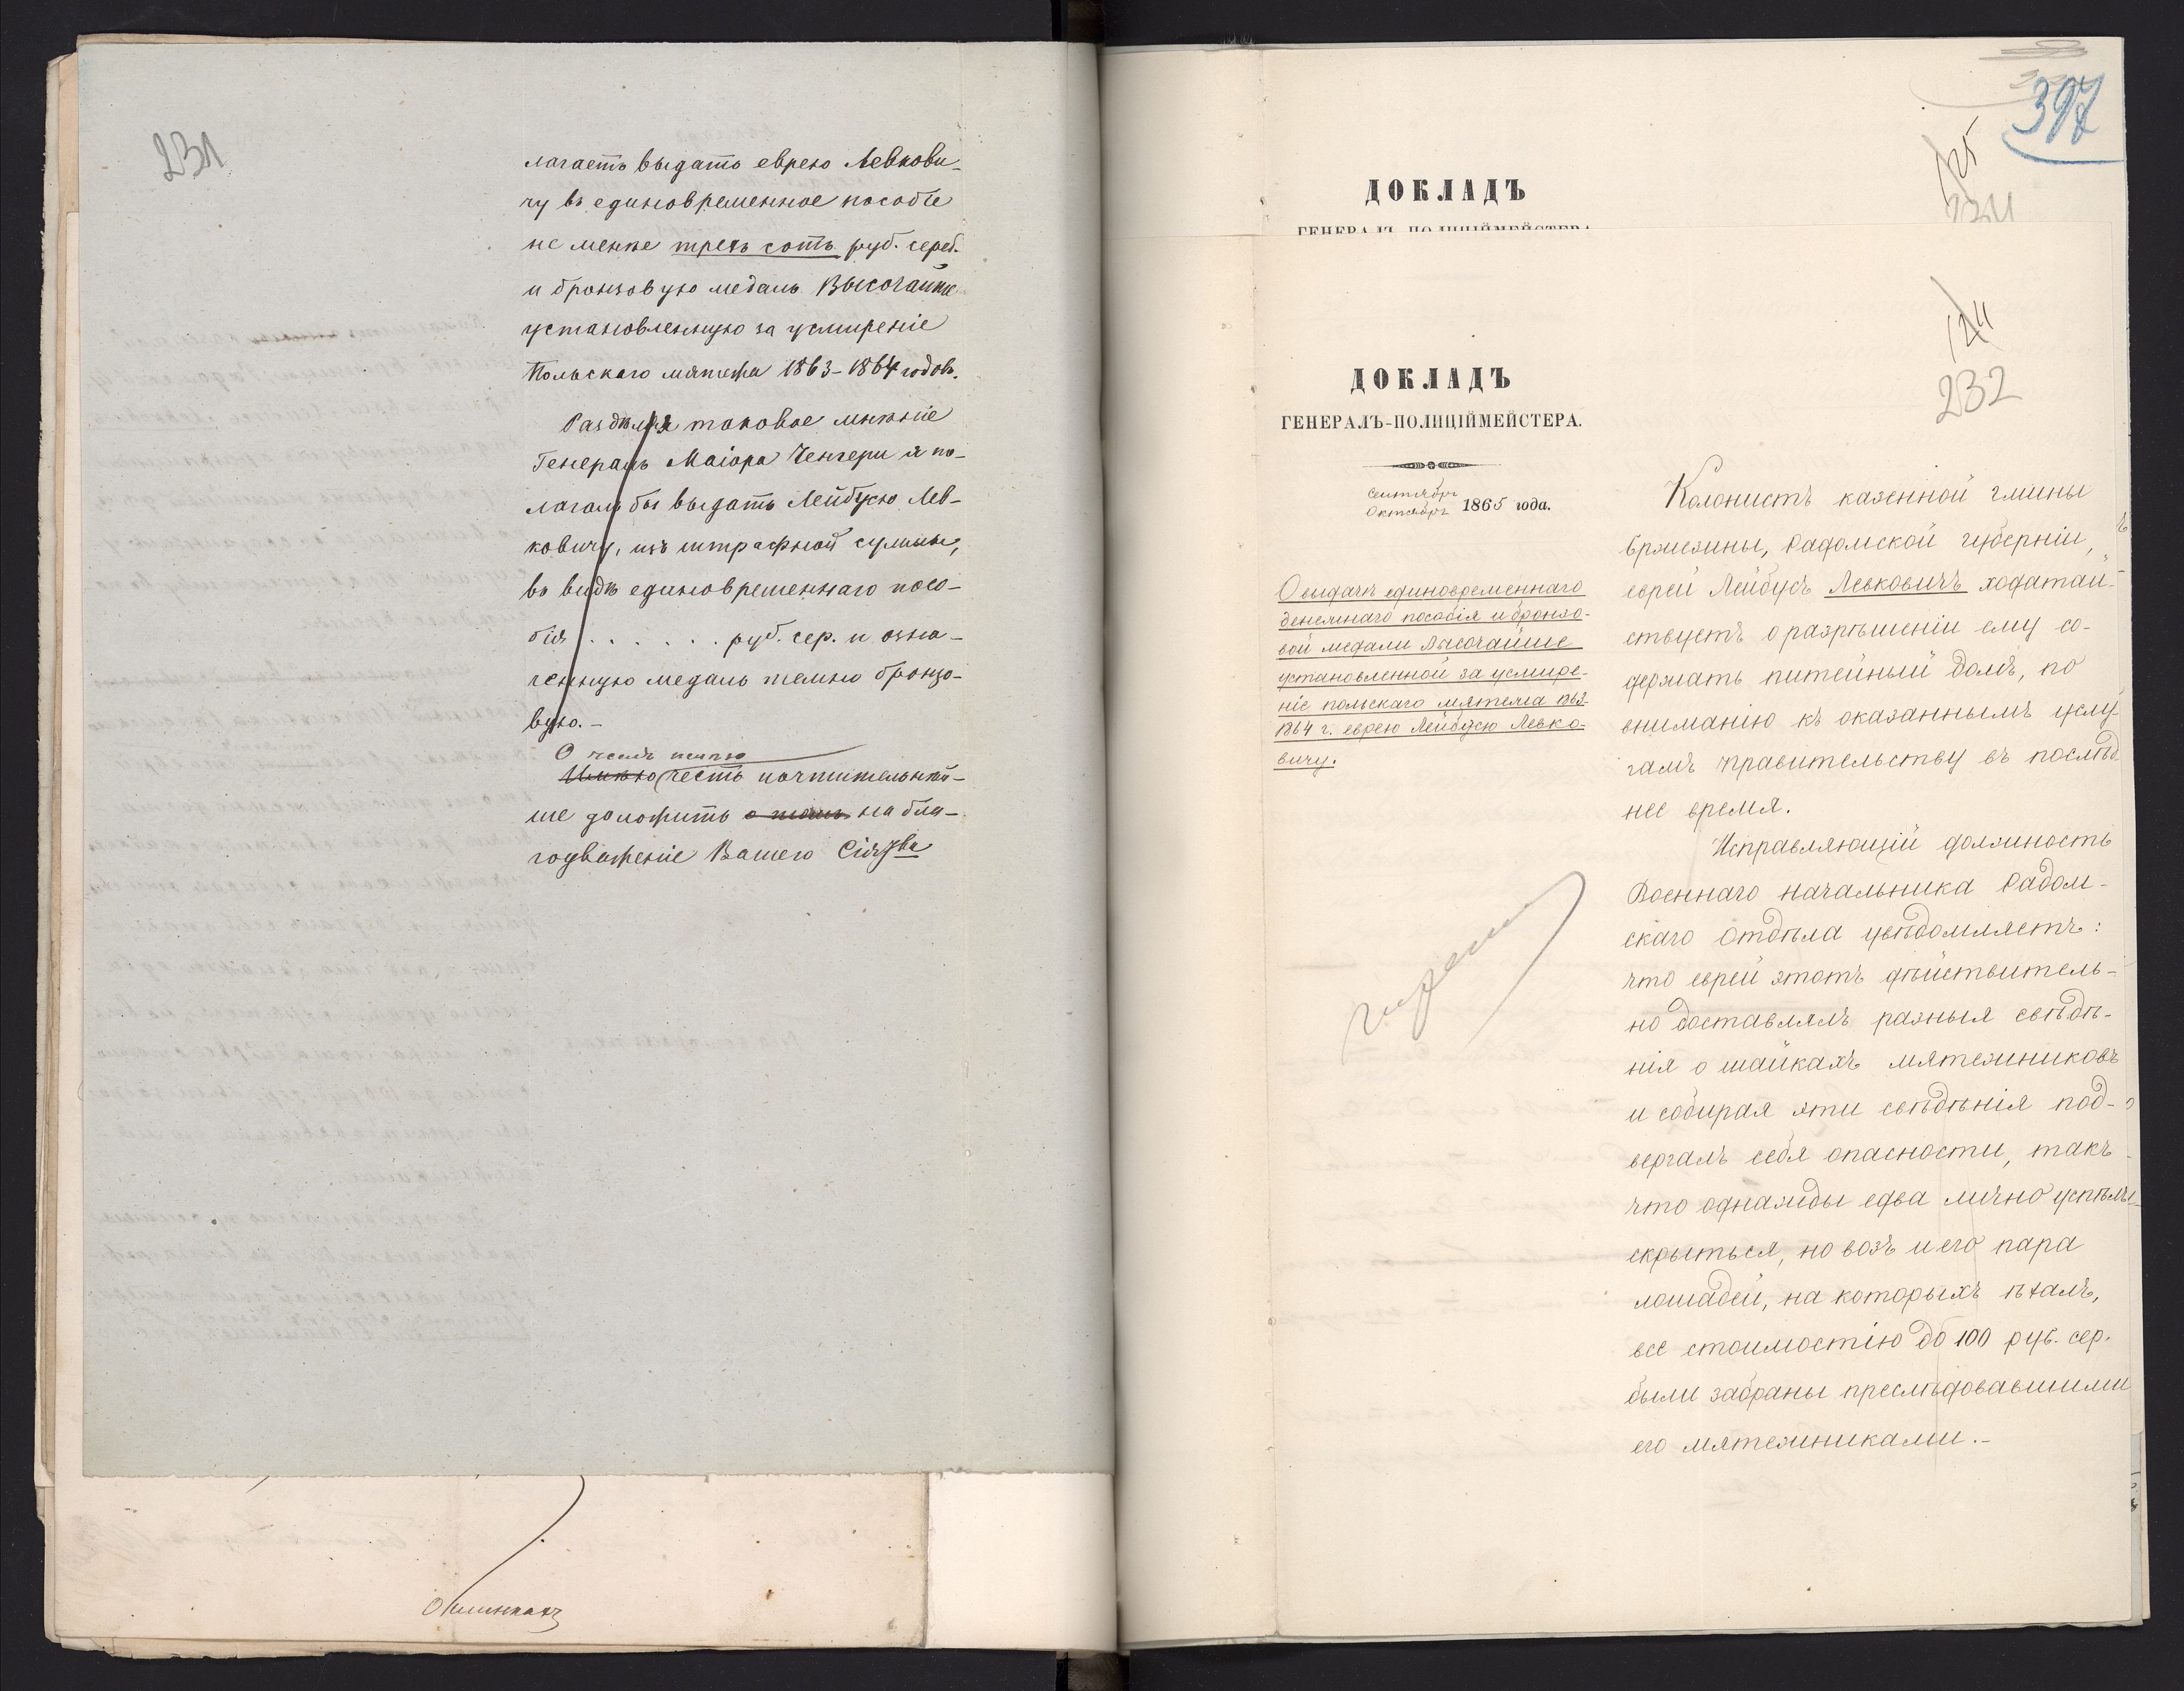 231
лагаетъ выдать еврею Левкови-
чу въ единовременное пособіе
не менѣе трехъ сотъ руб. сереб.
и бронзовую медаль Высочайше
установленную за усмиреніе
Польскаго мятежа 1863-1864 годовъ.
Раздѣляя таковое мнѣніе
Генералъ Маіора Ченгери я по-
лагалъ бы выдать Лейбусю Лев-
ковичу, изъ штрафной суммы,
въ видѣ единовременнаго посо-
бія . . . . . . руб. сер. и озна-
ченную медаль темно бронзо-
вую.-
О чемъ имѣю
Имѣю честь почтительнѣй-
ше доложить о томъ на бла-
гоуваженіе Вашего Сіятва
397
125
231
ДОКЛАДЪ
ГЕНЕРАЛЪ-ПОЛИЦІЙМЕЙСТЕРА
124
232
ДОКЛАДЪ
ГЕНЕРАЛЪ-ПОЛИЦІЙМЕЙСТЕРА.
Сентябрь
Октябрь 1865 года.
О выдачѣ единовременнаго
денежнаго пособія и бронзо-
вой медали Высочайше
установленной за усмире-
ніе польскаго мятежа 1863-
1864 г. еврею Лейбусю Левко-
вичу.
Колонистъ казенной гмины
Бржезины, Радомской губерніи,
еврей Лейбусь Левковичъ ходатай-
ствуетъ о разрѣшеніи ему со-
держать питейный домъ, по
вниманію къ оказаннымъ услу-
гамъ правительству въ послѣд
нее время.
Исправляющій должность
Военнаго Начальника Радом-
скаго Отдѣла увѣдомляетъ:
что еврей этотъ дѣйствитель-
но доставлялъ разныя свѣдѣ-
нія о шайкахъ мятежниковъ
и собирая эти свѣдѣнія под-
вергалъ себя опасности, такъ
что однажды едва лично успѣлъ
скрыться, но возъ и его пара
лошадей, на которыхъ ѣхалъ,
все стоимостію до 100 руб. сер.
были забраны преслѣдовавшими
его мятежниками.-